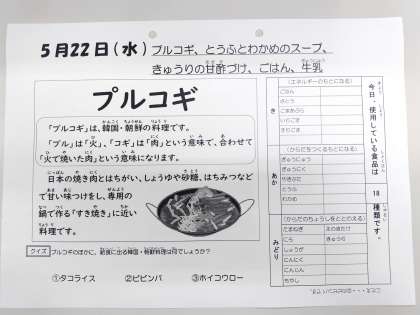 5月22日(水) プルコギ、とうふとわかめのスープ、
きゅうりの甘酢づけ、ごはん、牛乳
プルコギ
「プルコギ」は、韓国・朝鮮の料理です。
「プル」は「火」、「コギ」は「肉」という意味で、合わせて
「火で焼いた肉」という意味になります。
日本の焼き肉とはちがい、しょうゆや砂糖、はちみつなど
で甘い味つけをし、専用の
鍋で作る「すき焼き」に近い
料理です。
クイズ プルコギのほかに、給食に出る韓国・朝鮮料理は何でしょうか?
①タコライス ②ビビンバ ③ホイコウロー
今日、使用している食品は
18
種類です。
き
(エネルギーのもとになる)
ごはん
さとう
ごまあぶら
いりごま
あか
(からだをつくるもとになる)
ぎゅうにゅう
とうふ
わかめ
みどり
(からだのちょうしをととのえる)
たまねぎ
にら
きゅうり
しょうが
にんじん
にんにく
もやし